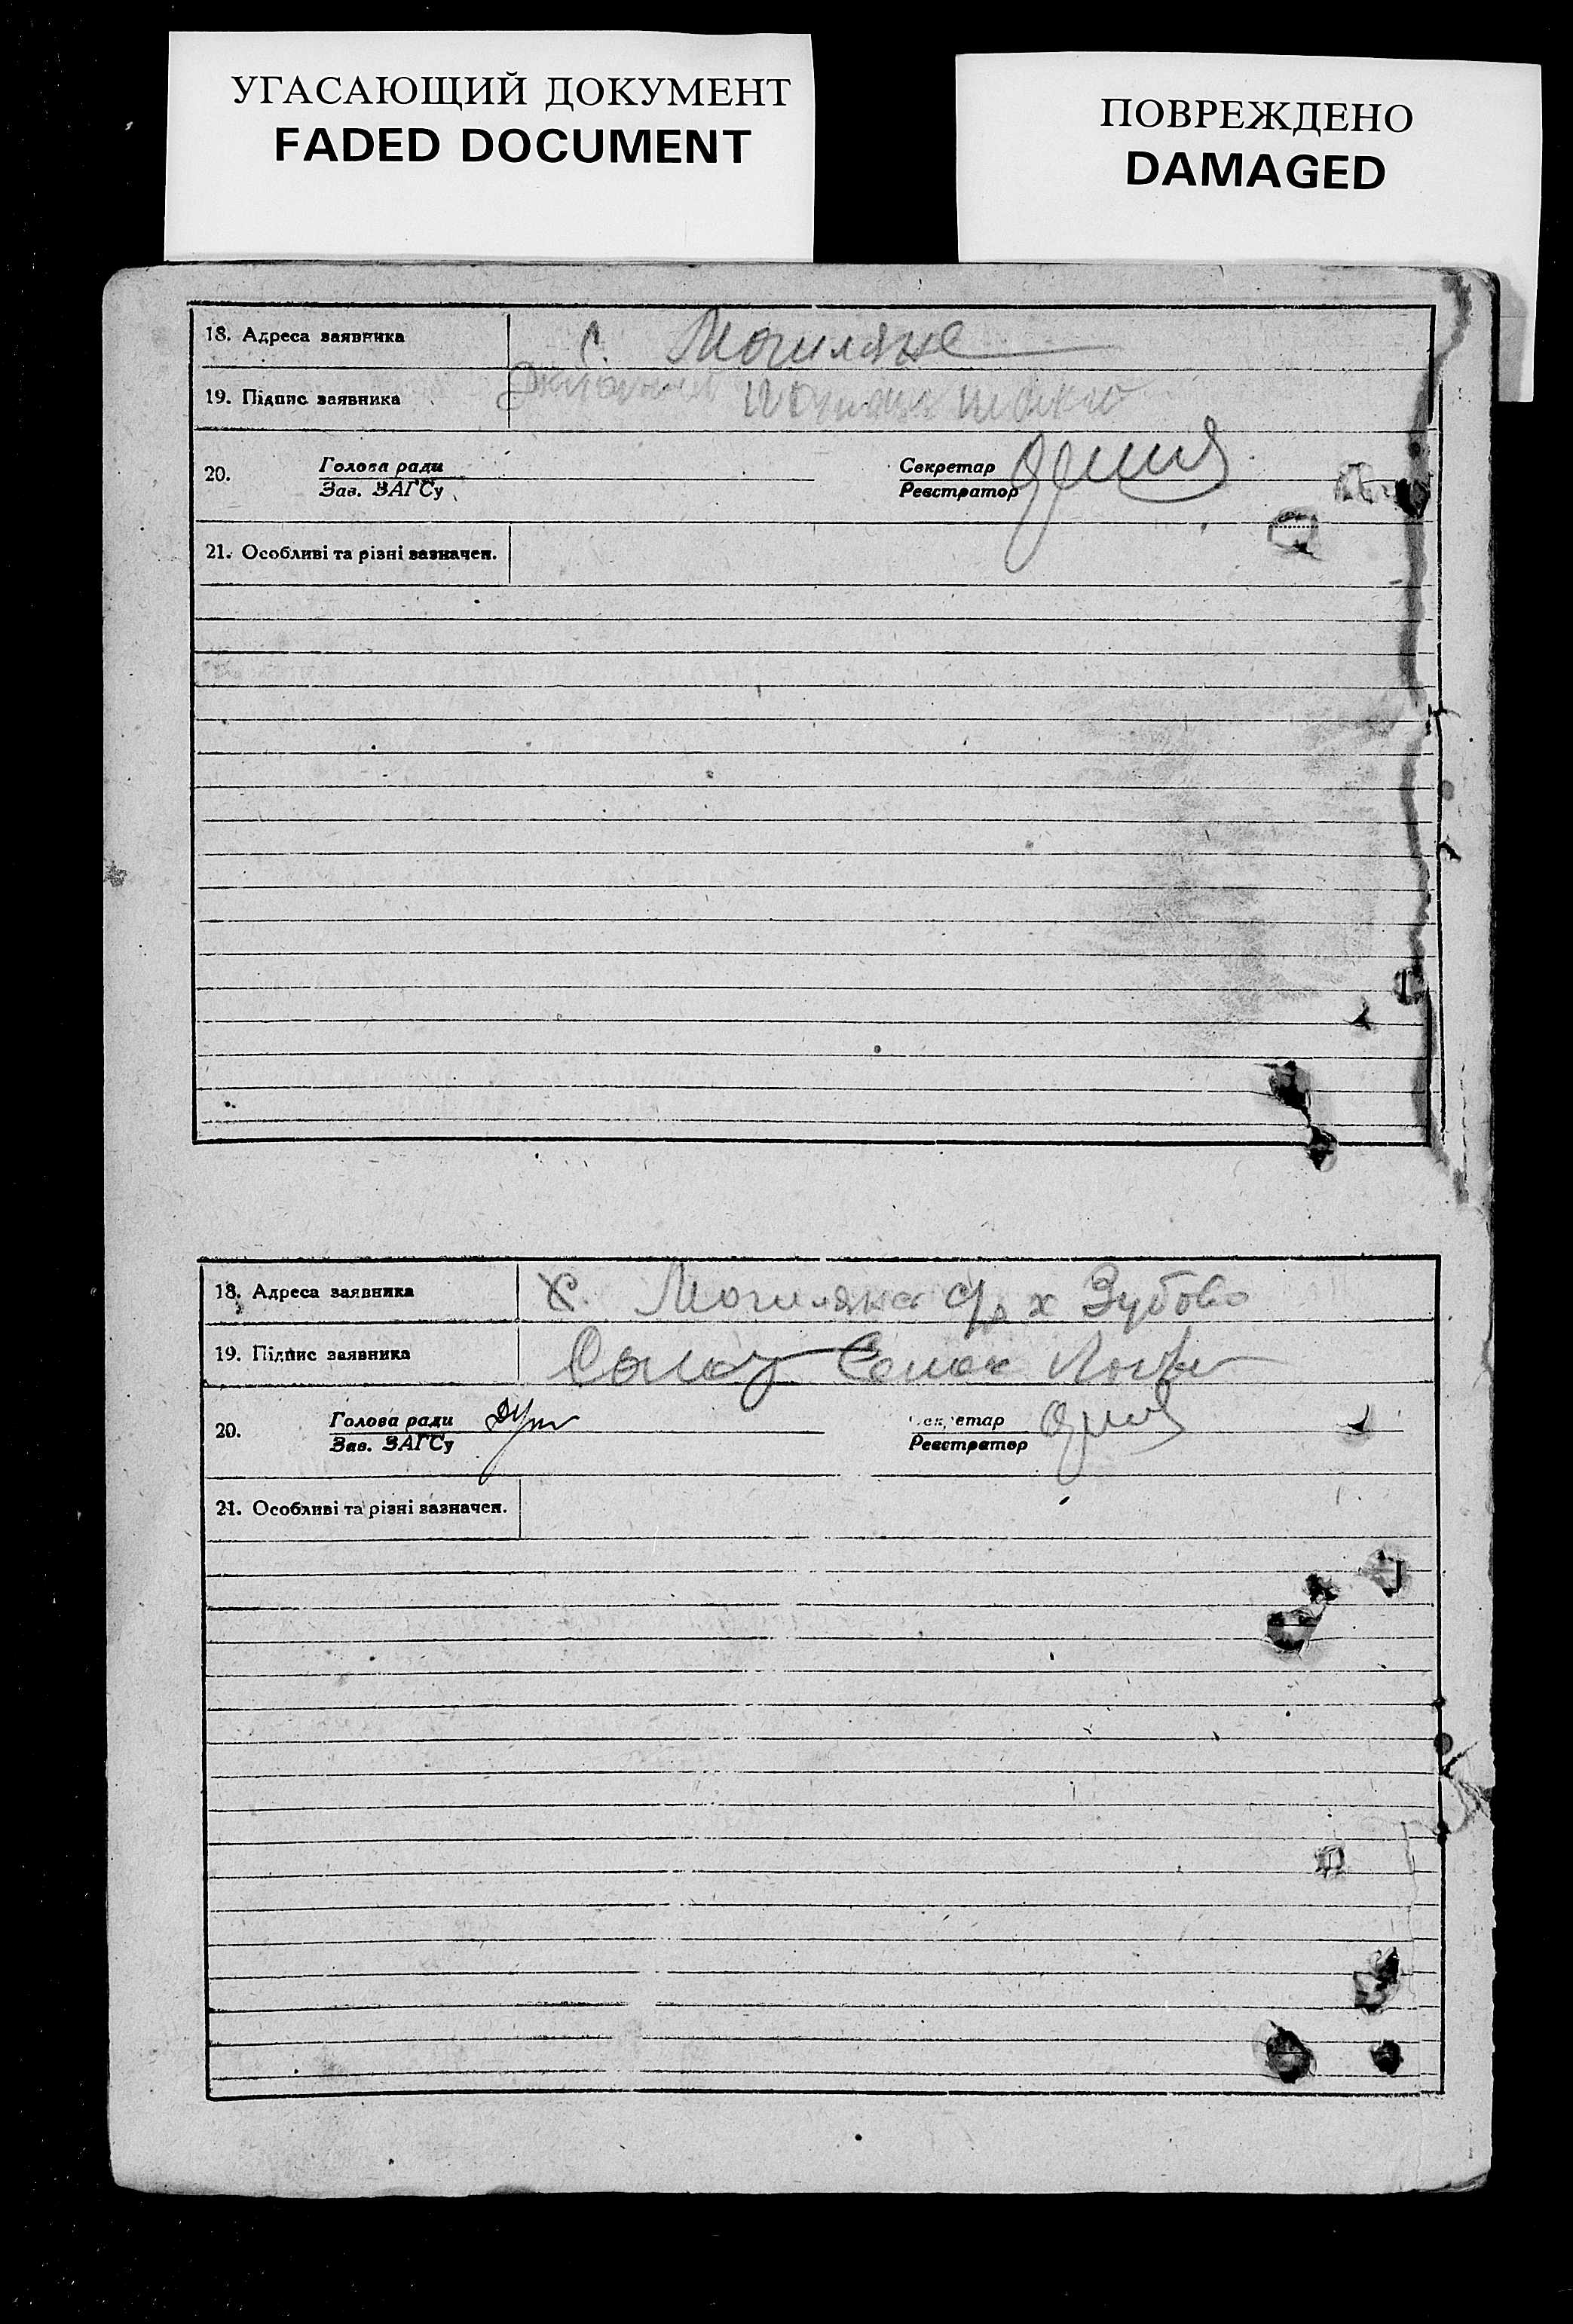 УГАСАЮЩИЙ ДОКУМЕНТ
FADED DOCUMENT
ПОВРЕЖДЕНО
DAMAGED
18. Адреса заявника с. Могиляне
19. Підпис заявника
20. Голова ради Секретар
Зав. ЗАГСу Реєстратор
21. Особливі та різні зазначен.
18. Адреса заявника с. Могиляне х Зубово
19. Підпис заявника
20. Голова ради Секретар
Зав. ЗАГСу Реєстратор
21. Особливі та різні зазначен.